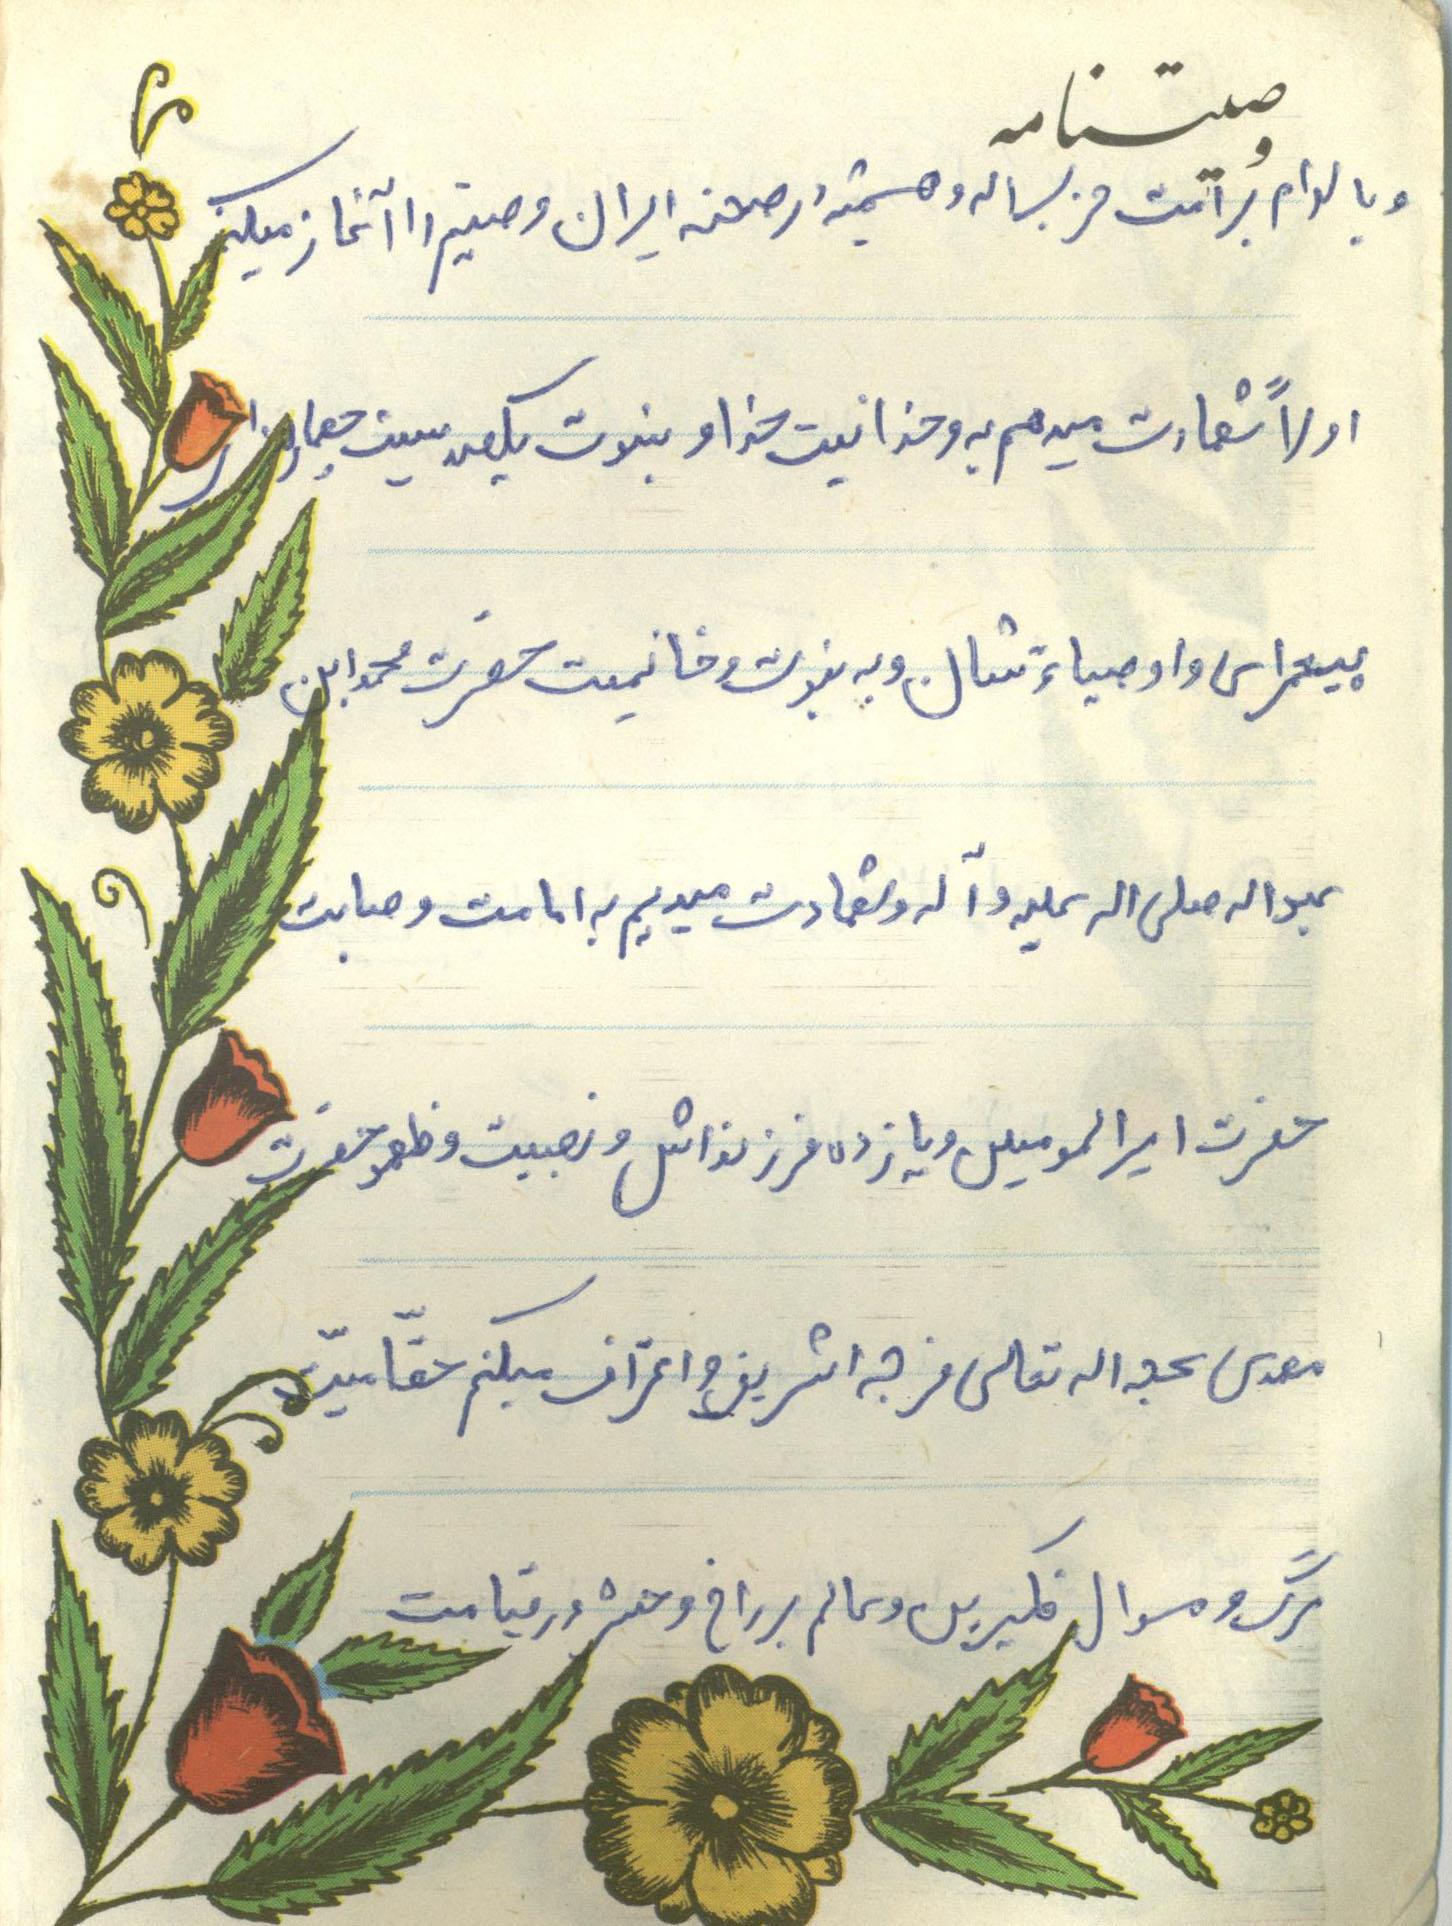 وصیتنامه
و با لوام برآمت حزبساله و همیشه در صحنه ایران وصیتم را آغاز میکنم
اولاً شهادت میدهم به وحدانیت خدا و بنبوت یکصد بیست چهار هزار
پیغمبراس و اوصیاء شان و به نبوت و خاتمیت حضرت محمد ابن
عبداله صلی اله علیه و آله و شهادت میدیم به امامت وصایت
حضرت امیرالمومنین و یازده فرزندانش و نصبیت و ظهور حضرت
مهدی عجد اله تعالی فرجه اشریف و اعتراف میکنم حقّامیّت
مرگ و سوال نکیرین و عالم برزاخ و حشر در قیامت